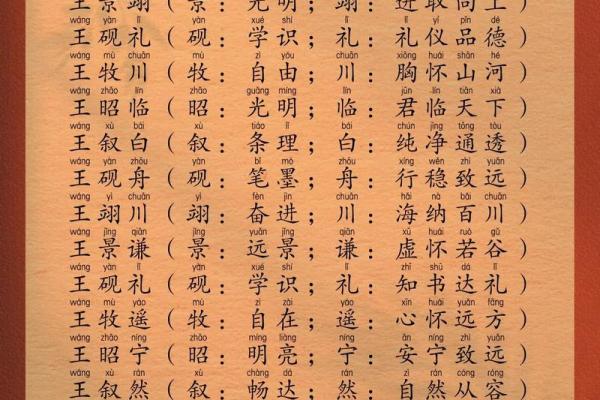 王景翊（景：光明；翊：进取向上）
wáng yàn lǐ yàn xué shí lǐ lǐ yí pǐn dé
王砚礼（砚：学识；礼：礼仪品德）
wáng mù chuān mù zì yóu chuān xiōng huái shān hé
王牧川（牧：自由；川：胸怀山河）
wáng zhāo lín zhāo guāng míng lín jūn lín tiān xià
王昭临（昭：光明；临：君临天下）
wáng xù bái xù tiáo lǐ bái chún jìng tōng tòu
王叙白（叙：条理；白：纯净通透）
wáng yàn zhōu yàn bǐ mò zhōu xíng wěn zhì yuǎn
王砚舟（砚：笔墨；舟：行稳致远）
wáng yì chuān yì fèn jìn chuān hǎi nà bǎi chuān
王翊川（翊：奋进；川：海纳百川）
wáng jǐng qiān jǐng yuǎn jǐng qiān xū huái ruò gǔ
王景谦（景：远景；谦：虚怀若谷）
wáng yàn lǐ yàn xué shí lǐ zhī shū dá lǐ
王砚礼（砚：学识；礼：知书达礼）
wáng mù yáo mù zì zài yáo xīn huái yuǎn fāng
王牧遥（牧：自在；遥：心怀远方）
wáng zhāo níng zhāo míng liàng níng ān níng zhì yuǎn
王昭宁（昭：明亮；宁：安宁致远）
wáng xù rán xù chàng dá rán zì rán cóng róng
王叙然（叙：畅达；然：自然从容）